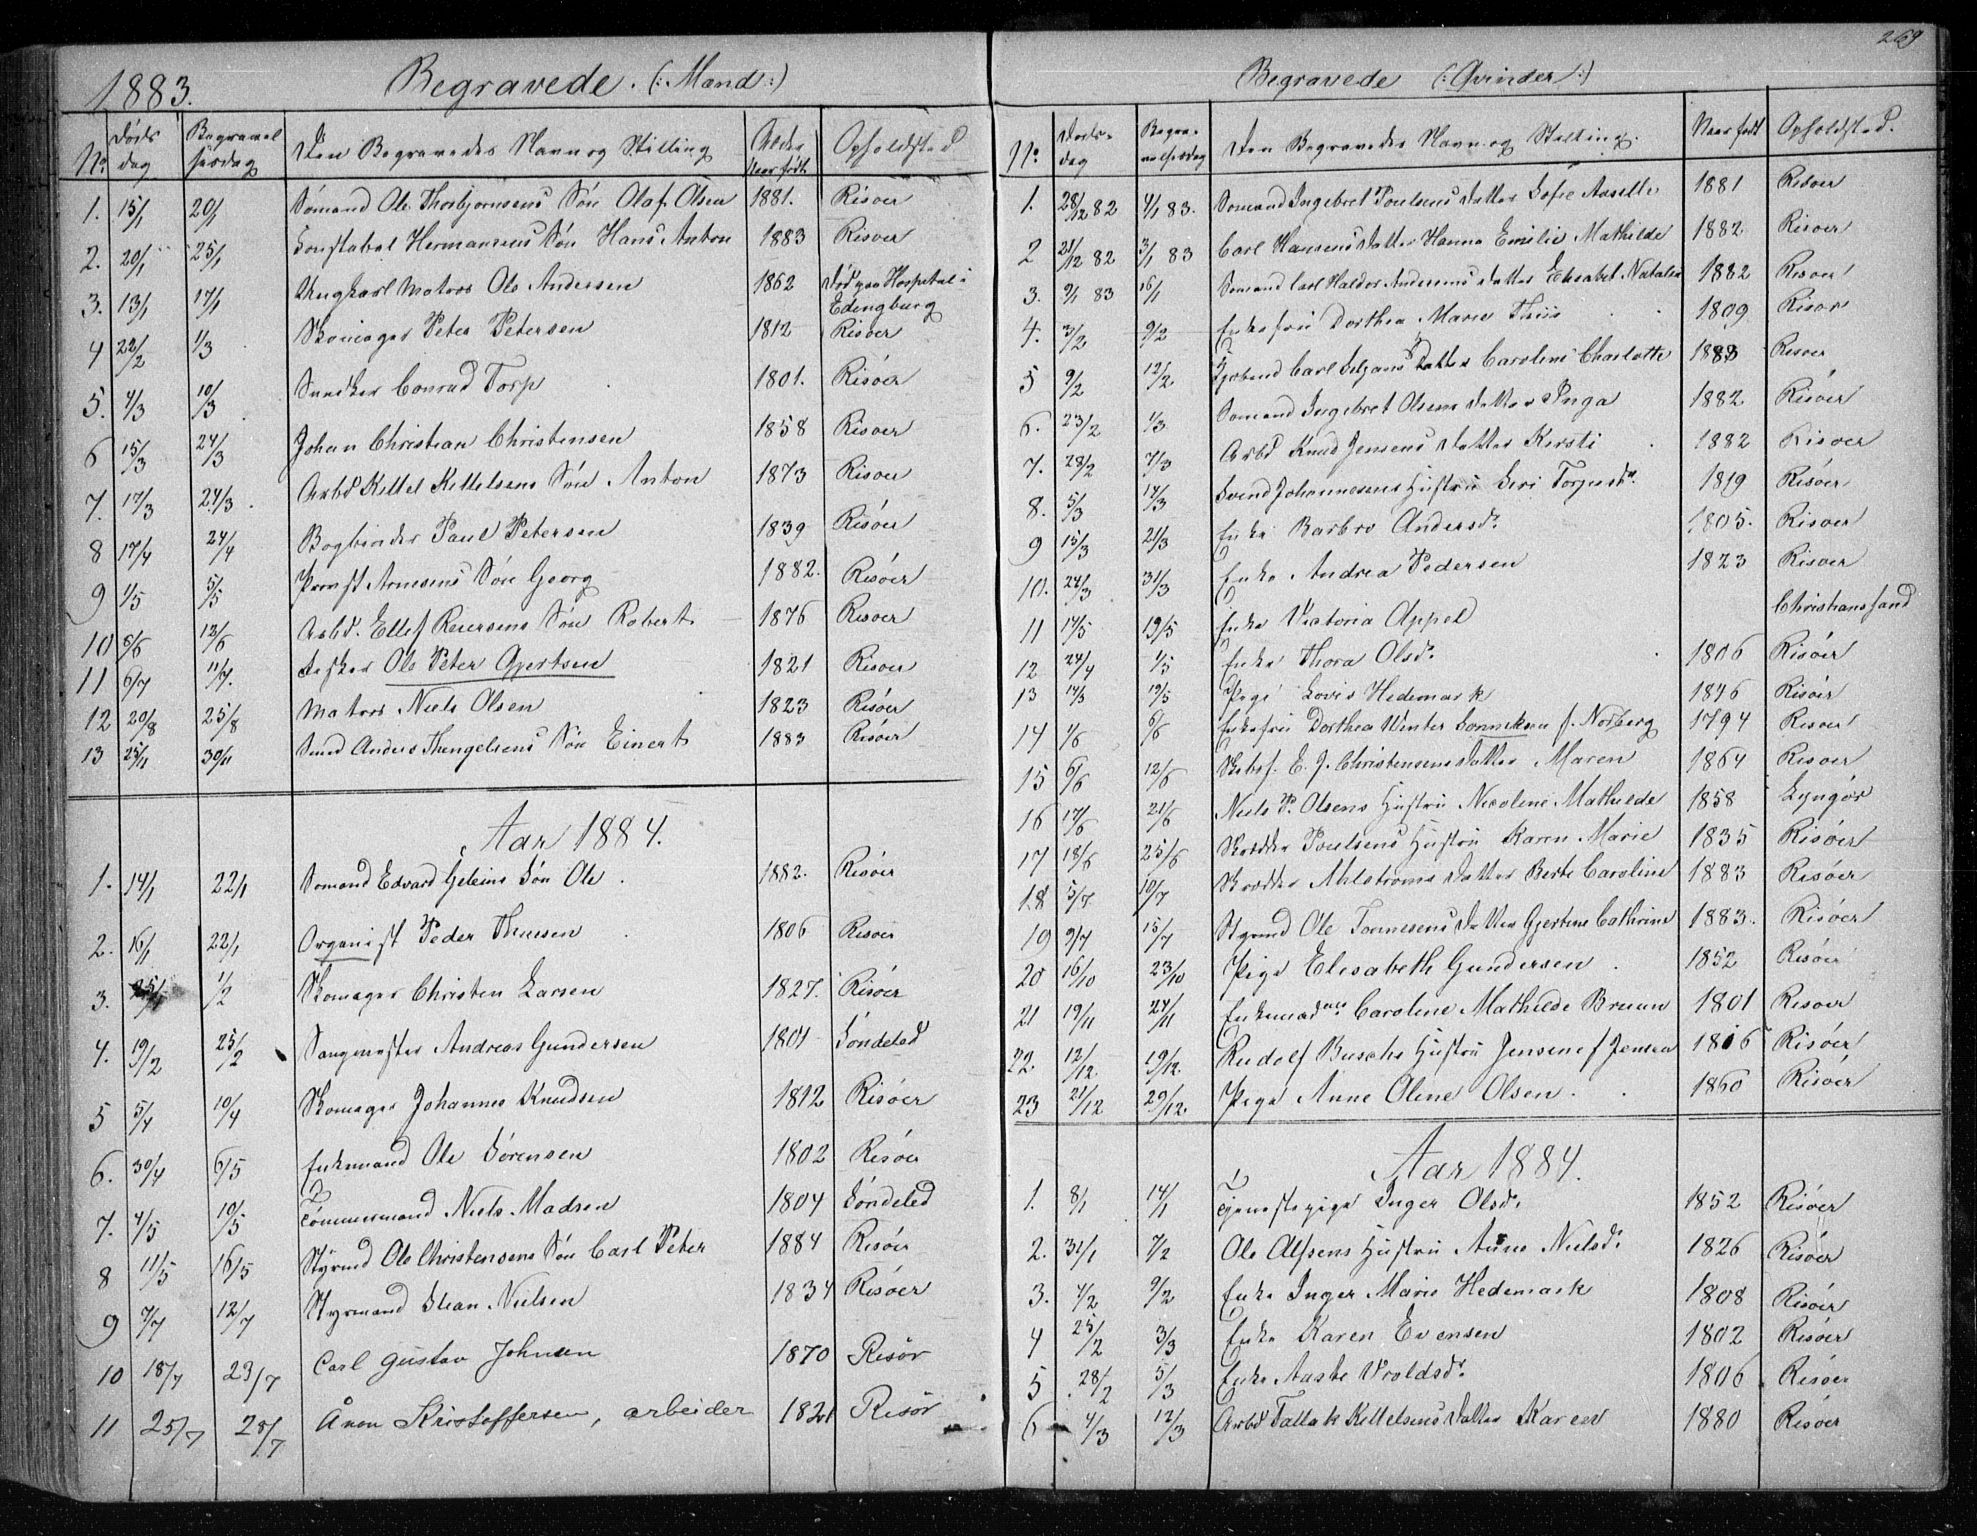 269
1883. Begravede. (: Mænd :)
No Døds dag Begravelsesdag Den Begravedes Navn og Stilling Alder Naar født Opholdsted
1. 15/1 20/1 Sömand Ole Thorbjornsens Sön Olaf Olsen 1881. Risöer
2. 20/1 25/1 Constabel Hermansens Sön Hans Anton 1883 Risoer
3. 13/1 17/1 Ungkarl Matros Ole Andersen 1862 Död paa Hospital i Edingburg
4 22/2 1/3 Skomager Peter Petersen 1812 Risoer
5. 4/3 10/3 Snedker Conrad Torp 1801. Risöer
6 15/3 24/3 Johan Christian Christensen 1858 Risoer
7. 17/3 24/3. Arbd Kittel Kittelsens Sön Anton 1873 Risoer
8 17/4 24/4 Bogbinder Paul Petersen 1839 Risöer
9 1/5 5/5 Provst Arnesens Sön Georg 1882. Risöer
10 6/6 13/6 Arbd. Ellef Reiersens Sön Robert 1876 Risoer
11 6/7 11/7. Fisker Ole Peter Gjertsen 1821 Risoer
12 20/8 25/8 Matros Niels Olsen 1823 Risöer
13 25/11 30/11 Smed Anders Thengelsens Sön Einert 1883 Risöer
Aar 1884.
1. 14/1 22/1 Somand Edvard Geleins Sön Ole 1882. Risöer
2. 16/1 22/1 Organist Peder Thuesen 1806 Risoer
3. 25/1 1/2 Skomager Christen Larsen 1827. Risöer
4. 19/2 25/2 Sangmester Andreas Gundersen 1801 Söndeled
5 5/4 10/4 Skomager Johannes Knudsen 1812 Risöer
6. 30/4 6/5 Enkemand Ole Sörensen 1802 Risöer
7. 4/5 10/5 Tömmermand Niels Madsen 1804 Söndeled
8 11/5 16/5 Styrmd Ole Christensens Sön Carl Peter 1884 Risöer
9 7/7 12/7 Styrmand Stian Nielsen 1834 Risöer
10 18/7 23/7 Carl Gustav Johnsen 1870 Risör
11 25/7 28/7 Ånon Kristoffersen, arbeider 1821 Risör
Begravede (: Qvinder :)
No. Döds-dag Begravelsesdag Den Begravedes Navn og Stilling. Naar født Opholdsted.
1. 28/12 82 4/1 83. Somand Ingebret Poulsens Datter Sofie Aasette 1881 Risoer
2 21/12 82 3/1 83 Carl Hansens Datter Hanna Emilie Mathilde 1882 Risoer
3. 9/1 83 16/1 Somand Carl Haldor Andersens Datter Elisabet Natalia 1882 Risoer
4. 3/2 9/2 Enkefru Dorthea Marie Thiis 1809 Risoer
5 9/2 12/2 Carl Datter Caroline Charlotte 1883 Risoer
6. 23/2 1/3 Somand Ingebret Olsens Datter Inga 1882 Risöer
7. 28/2 7/3 Arbd Knud Jensens Datter Kirsti 1882 Risoer
8. 5/3 14/3 Svend Johannesens Hustru Siri Torjusdr. 1819 Risöer
9 15/3 21/3 Enke Barbro Andersdr. 1805. Risoer
10. 24/3 31/3 Enke Andrea Pedersen 1823 Risoer
11 14/5 19/5 Enke Victoria Appel Christianssand
12 24/4 1/5 Enke Thora Olsdr. 1806 Risöer
13 14/5 19/5 Pige Lovis Hedemark 1846 Risöer
14 1/6 6/6 Enkefru Dorthea Winter Sonniksen f. Norberg 1794 Risoer
15 6/6 12/6 Skibsf. E. J. Christensens Datter Maren 1864 Risoer
16 17/6 21/6 Niels P. Olsens Hustru Nicoline Mathilde 1858 Lyngör
17 18/6 25/6 Skrædder Poulsens Hustru Karen Marie 1835 Risöer
18 5/7 10/7 Skrædder Ahlströms Datter Berte Caroline 1883 Risöer
19 9/7 15/7 Styrmd Ole Tonnesens Datter Gjertine Cathrine 1883. Risöer
20 16/10 23/10 Pige Elisabeth Gundersen 1852 Risöer
21 19/11 24/11 Enkemadme Caroline Mathilde Bruun 1801 Risoer
22. 12/12 19/12. Rudolf Buschs Hustru Jensine f Jensen 1816 Risöer
23 21/12 29/12. Pige Anne Oline Olsen. 1860 Risöer
Aar 1884.
1. 8/1 14/1 Tjenestepige Inger Olsdr. 1852 Risöer
2. 31/1 7/2 Ole Alfsens Hustru Anne Nielsdr. 1826 Risöer
3. 4/2 9/2 Enke Inger Marie Hedemark 1808 Risöer
4 25/2 3/3 Enke Karen Evensen 1802 Risöer
5 28/2 5/3 Enke Aaste Vroldsdr. 1806 Risöer
6 4/3 12/3 Arbd Tallak Kittelsens Datter Karen 1880 Risöer